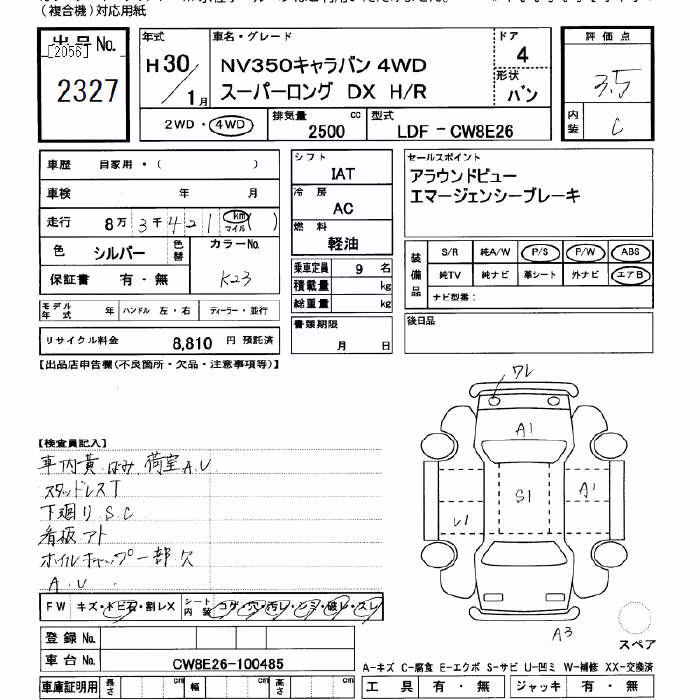 （複合機）対応用紙
出品No.
[2056]
2327
年式
H30/1月
車名・グレード
NV350キャラバン 4WD
スーパーロング DX H/R
ドア
4
形状
バン
2WD・4WD
排気量
2500 cc
型式
LDF-CW8E26
評価点
3.5
内装
C
車歴 自家用・( )
車検 年 月
走行 8万3千421 km マイル( )
色 シルバー 色替
カラーNo.
K23
保証書 有・無
モデル年式 年 ハンドル 左・右 ディーラー・並行
リサイクル料金 8,810 円 預託済
シフト
IAT
冷房
AC
燃料
軽油
乗車定員 9 名
積載量 kg
総重量 kg
書類期限
月 日
セールスポイント
アラウンドビュー
エマージェンシーブレーキ
装備品
S/R 純A/W P/S P/W ABS
純TV 純ナビ 革シート 外ナビ エアB
ナビ型番：
後日品
【出品店申告欄(不良箇所・欠品・注意事項等)】
【検査員記入】
車内黄ばみ 荷室A.U
スタッドレスT
下廻りS.C
看板アト
ホイルキャップ一部欠
A.U.
ワレ
A1
S1
A1
U1
A3
スペア
FW キズ・トビ石・割レX シート内装 コゲ・穴・汚レ・シミ・破レ・スレ
登録No.
車台No. CW8E26-100485
車庫証明用 長さ cm 幅 cm 高さ cm
A-キズ C-腐食 E-エクボ S-サビ U-凹ミ W-補修 XX-交換済
工具 有・無 ジャッキ 有・無